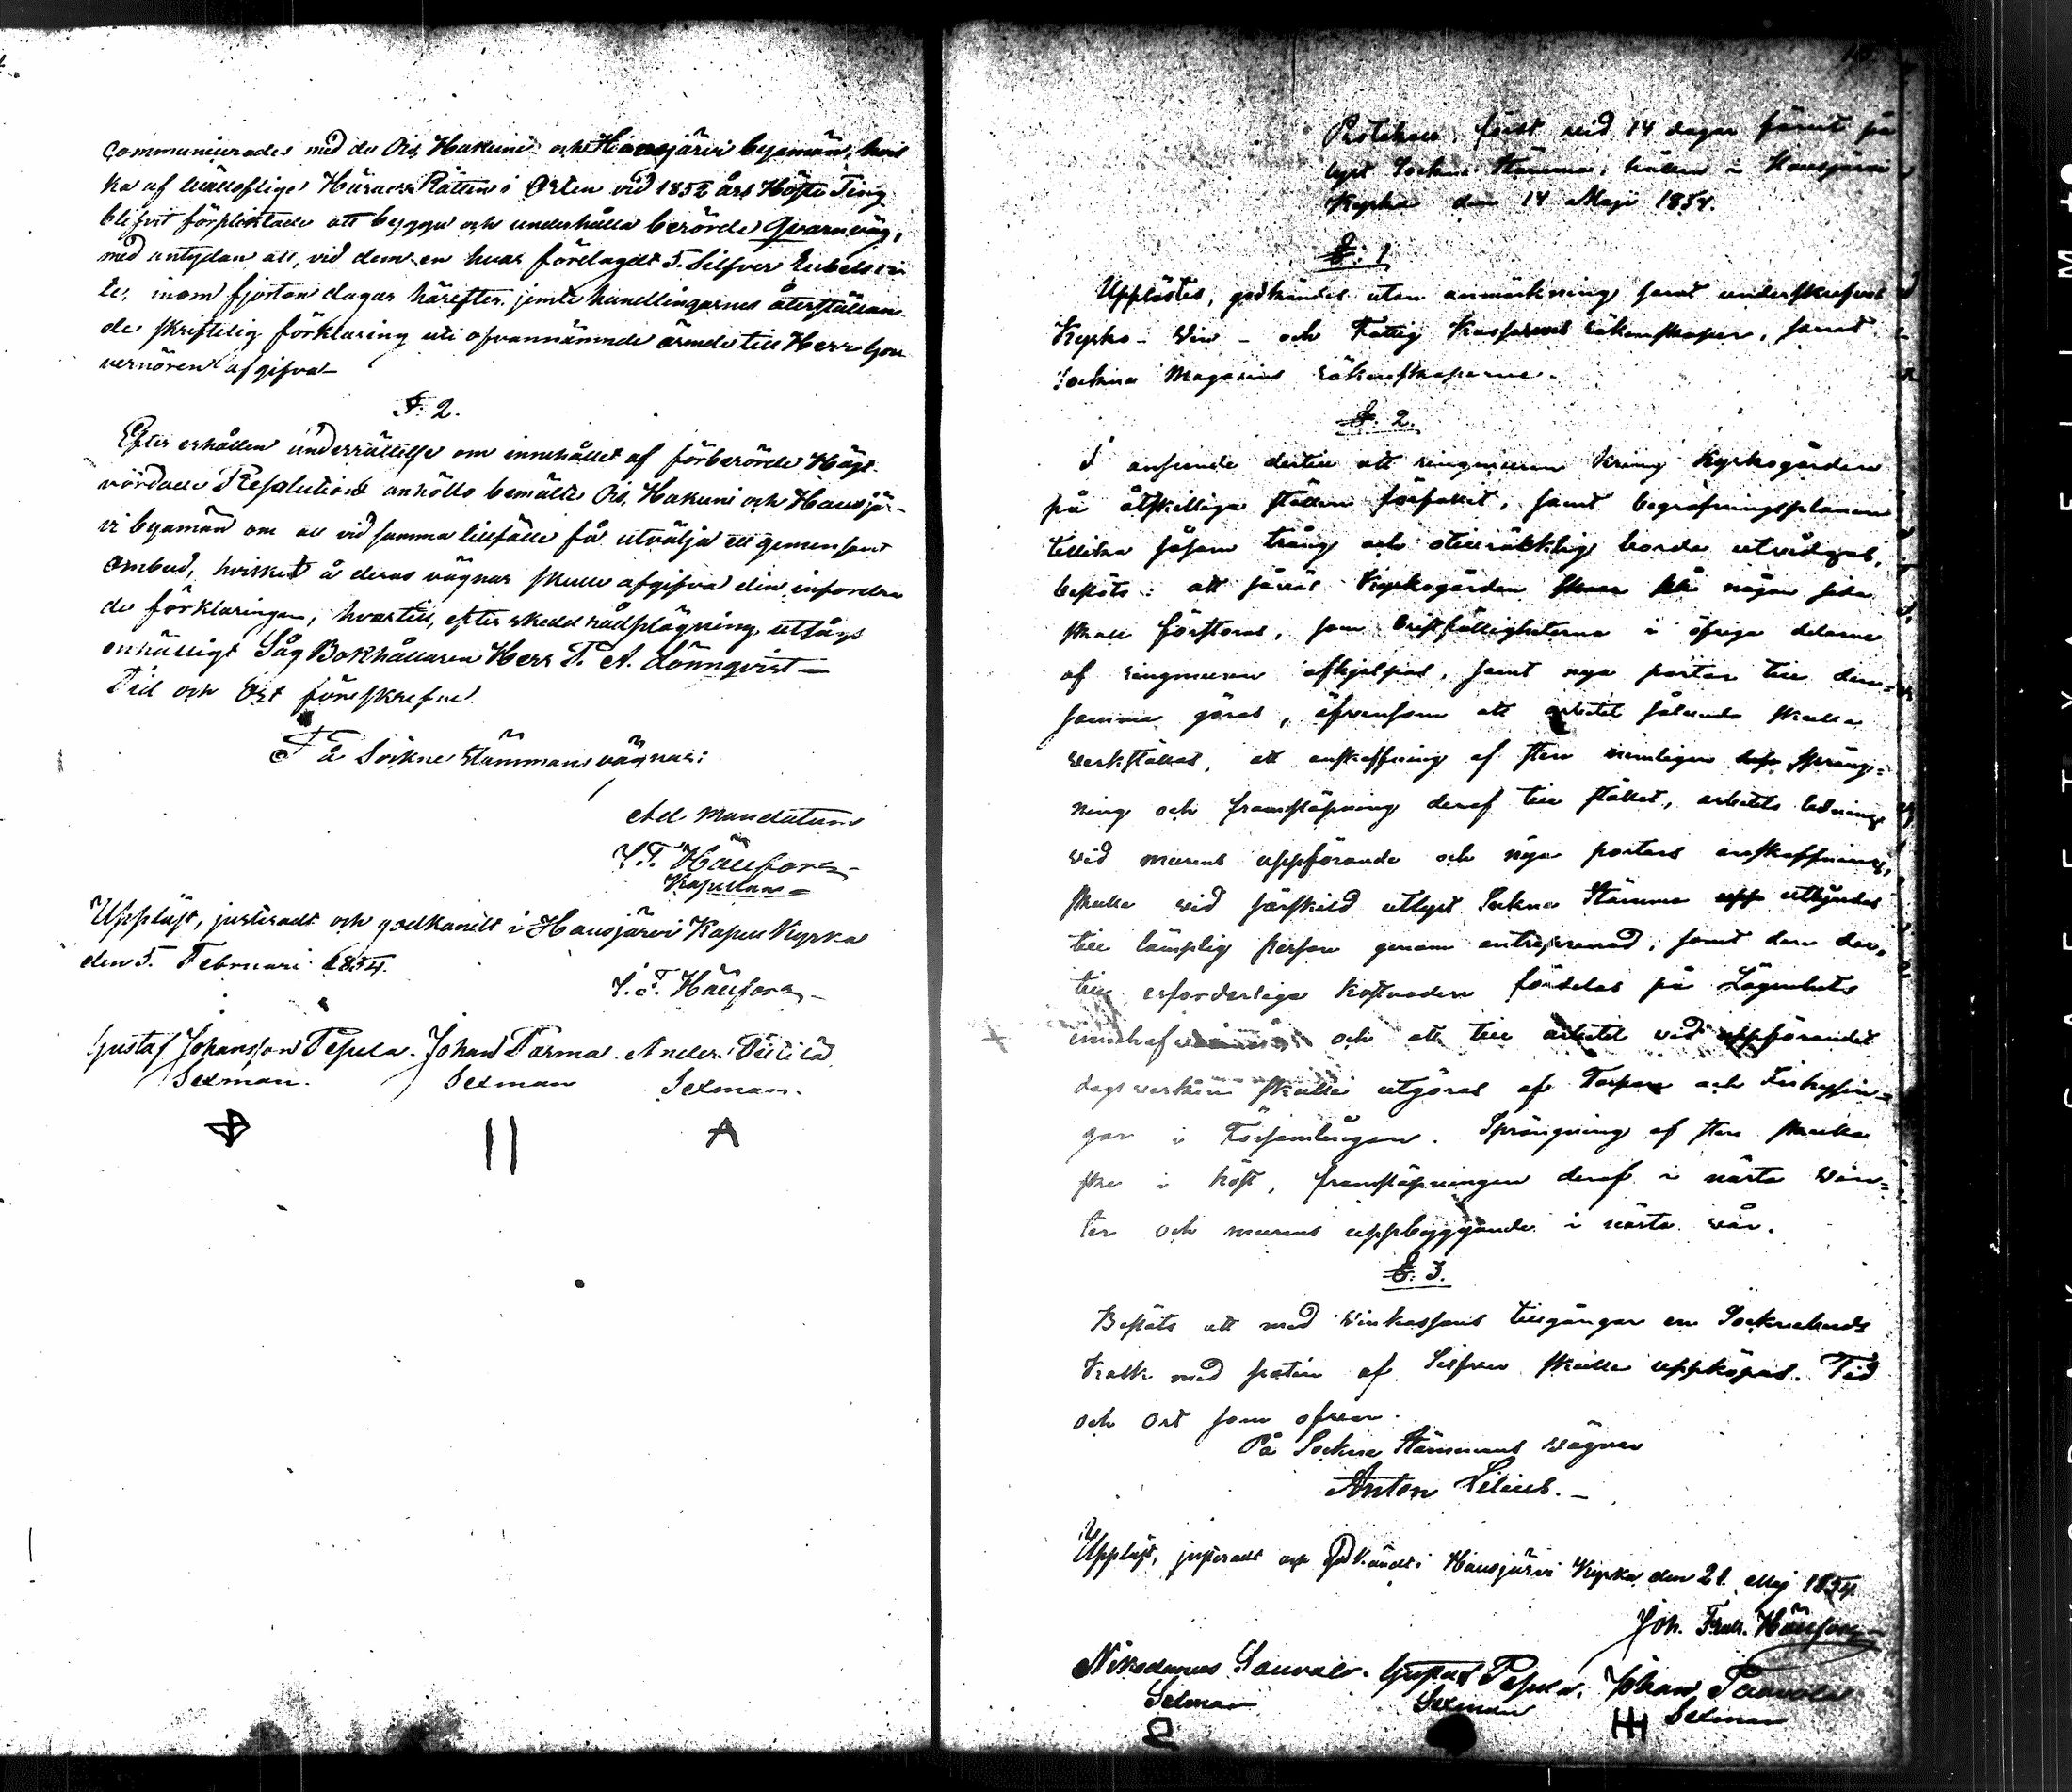 communicerades med de Ois, Hakuni och Hausjärvi byamän, hvil
ka af Wällofliga Härads Rätten i Orten vid 1852 års Höste Ting
blifvit förpliktade att bygga och underhålla berörde Qvarnväg,
med antydan att, vid dem en hvar förelagdt 5. Silfver Rubels vi
te, inom fjorton dagar härefter, jemte handlingarnes återställan
de skriftelig förklaring uti ofvannämnde ärende till Herr Gou
vernören afgifva—
§. 2.
Efter erhållen underrättelse om innehållet af förberörde Högt
vördade Resolution anhöllo bemälte Ois, Hakuni och Hausjär-
vi byamän om att vid samma tillfälle få utvälja ett gemensamt
ombud, hvilket å deras vägnar skulle afgifva den infordra
de förklaringen, hvartill, efter skedd rådplägning utsågs
enhälligt Såg Bokhållaren Herr T. A. Lönnqvist—
Tid och Ort föreskrefne.
På Sockne Stämmans vägnar:
Ad Mandatum
J. F. Hällfors
Kapellan
Uppläst, justeradt och godkändt i Hausjärvi Kapell Kyrka
den 5. Februari 1854.
J. F. Hällfors
Gustaf Johansson Pepula. Johan Parma. Anders
Sexman. Sexman Sexman.
|| A
Protokoll, fördt vid 14 dagar förut på
lyst Sockne Stämma, hållen i Hausjärvi
Kyrka den 14 Maji 1854.
§. 1
Upplästes, godkändes utan anmärkning samt underskrefvos
Kyrko- Vin- och Fattig Kassornes räkenskaper, samt
Sockne Magasins räkenskaperne.
§. 2.
I anseende dertill att ringmuren kring Kyrkogården
på åtskilliga ställen förfallit, samt begrafningsplanen
tillika såsom trång och otillräcklig borde utvidgas,
beslöts: att såväl Kyrkogården på någon sida
skall förstoras, som bristfälligheterna i öfriga delarne
af ringmuren afhjelpas, samt nya portar till den-
samma göras, äfvensom att arbetet sålunda skulle
verkställas, att anskaffning af sten nemligen spräng-
ning och framsläpning deraf till stället, arbetets ledning
vid murens uppförande och nya portars anskaffning,
skulle vid särskild utlyst Sockne Stämma utbjudas
till lämplig person genom entreprenad, samt den der-
till erforderliga kostnaden fördelas på Lägenhets
innehafvarne och att till arbetet vid uppförandet
dagsverken skulle utgöras af Torpare och Inhysin-
gar i Församlingen. Sprängning af sten skulle
ske i höst, framsläpningen deraf i nästa vin-
ter och murens uppbyggande i nästa vår.
§. 3.
Beslöts att med Vinkassans tillgångar en Sockenbuds
Kalk med paten af Silfver skulle uppköpas. Tid
och Ort som ofvan.
På Sockne Stämmans vägnar
Anton Lilius.—
Uppläst, justeradt och Godkändt i Hausjärvi Kyrka den 21. Maj 1854.
Joh. Fredr. Hällfors
Nikodemus Sauvala. Gustaf Pepula. Johan Paavola
Sexman Sexman Sexman